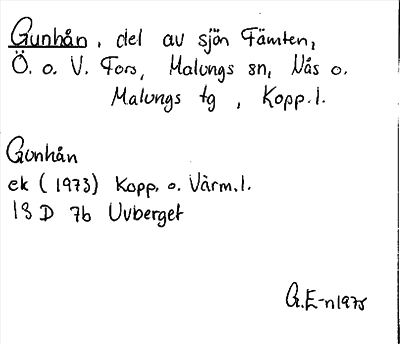 Gunhån, del av sjön Fämten,
Ö. o. V. Fors, Malungs sn, Nås o.
Malungs tg, Kopp.l.
Gunhån
ek (1973) Kopp. o. Värm.l.
13 D 7b Uvberget
G.E-n 1975